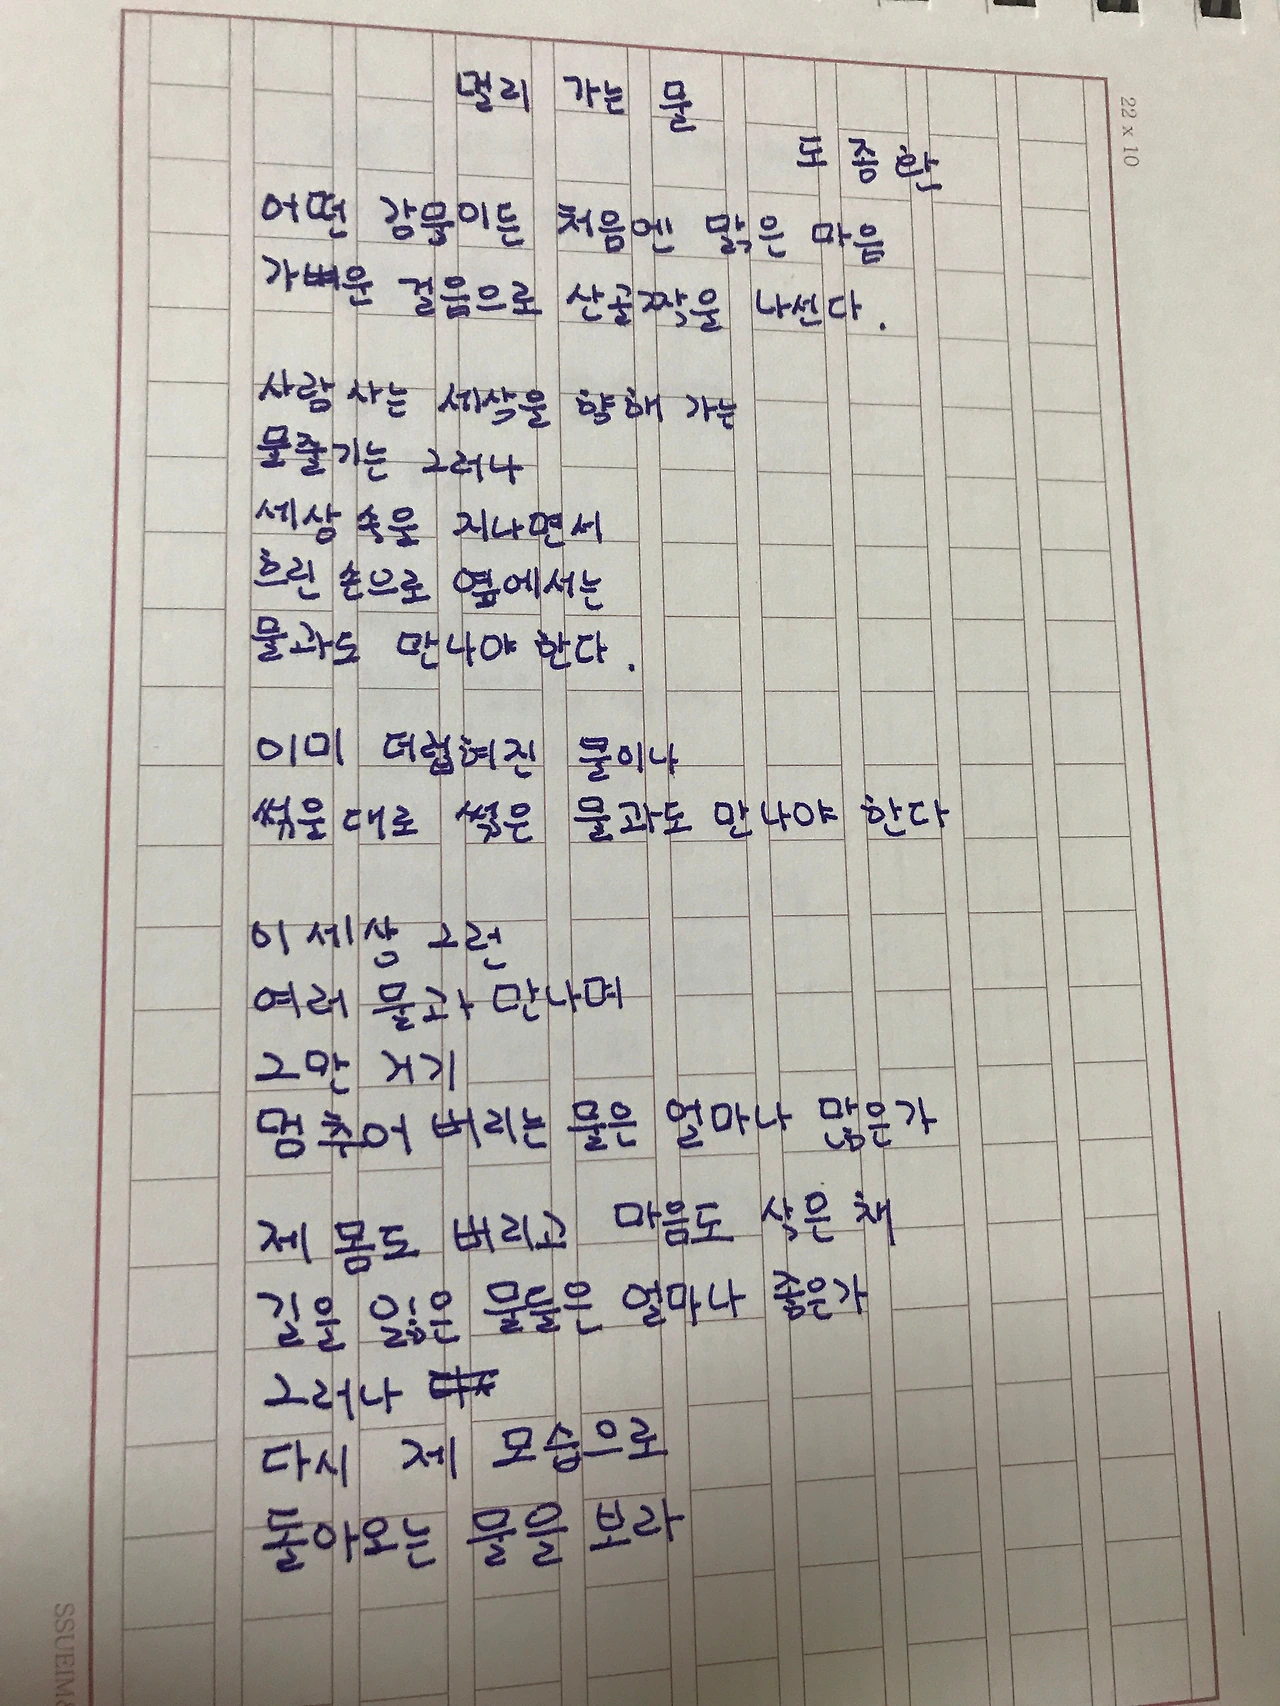 멀리 가는 물
도종환
어떤 강물이든 처음엔 맑은 마음
가벼운 걸음으로 산골짝을 나선다.
사람 사는 세상을 향해 가는
물줄기는 그러나
세상 속을 지나면서
흐린 손으로 옆에서는
물과도 만나야 한다.
이미 더럽혀진 물이나
썩을대로 썩은 물과도 만나야 한다
이 세상 그런
여러 물과 만나며
그만 거기
멈추어 버리는 물은 얼마나 많은가
제 몸도 버리고 마음도 삭은 채
길을 잃은 물들은 얼마나 좋은가
그러나
다시 제 모습으로
돌아오는 물을 보라
22 x 10